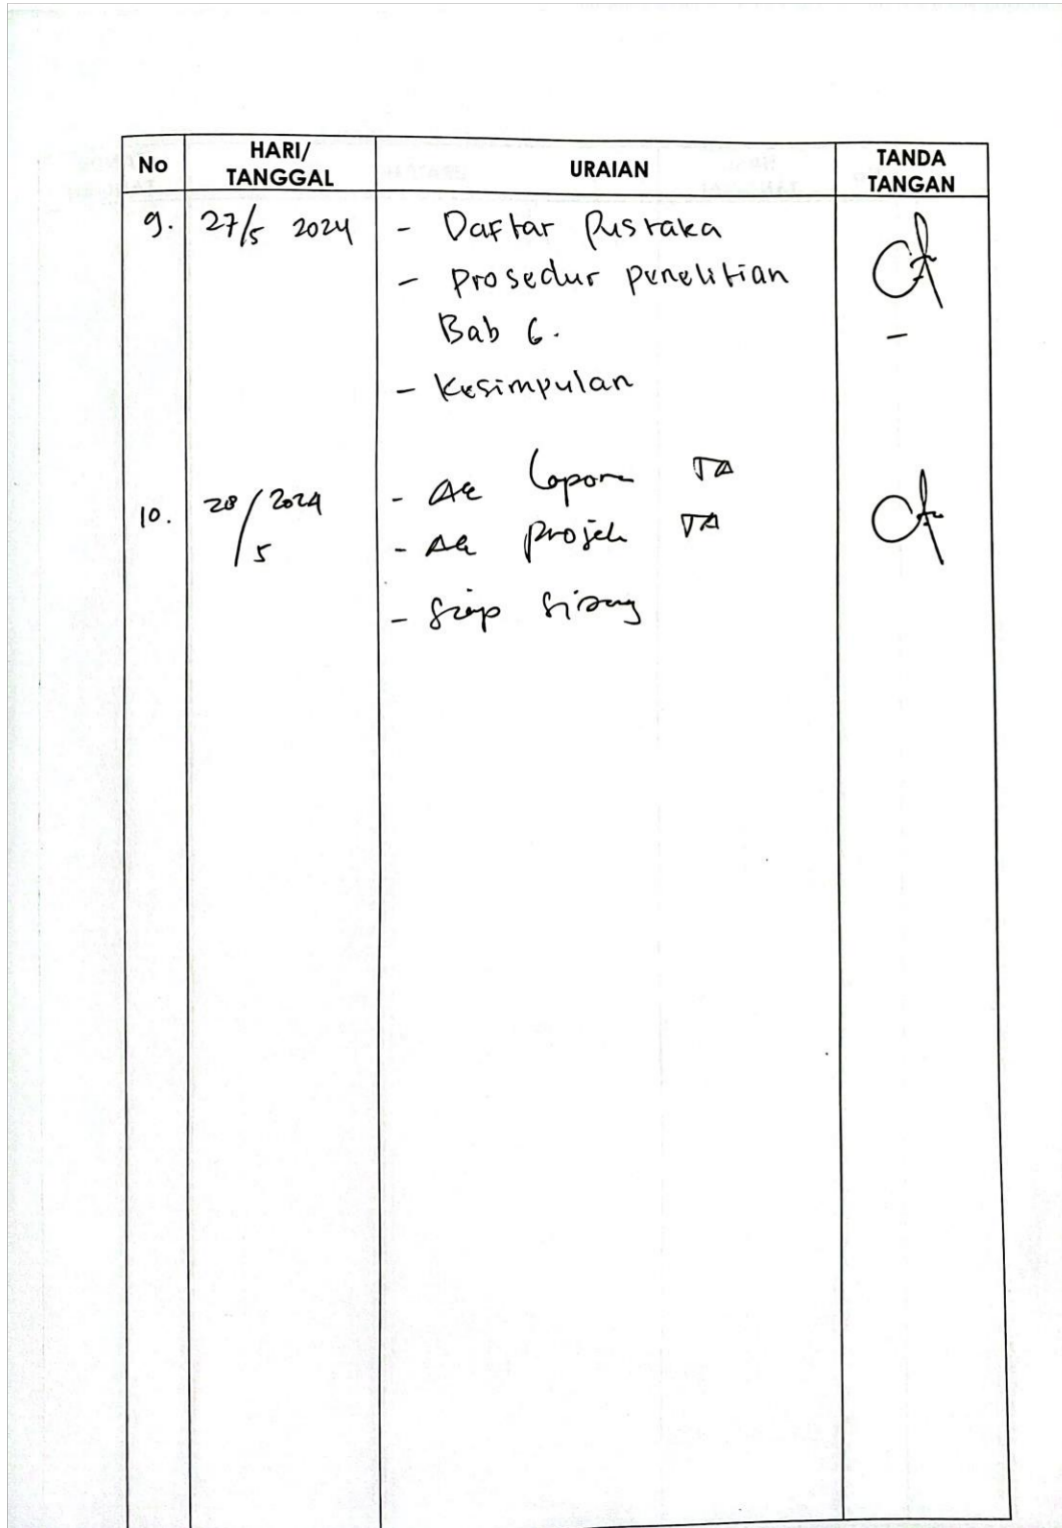 No HARI/ TANGGAL URAIAN TANDA TANGAN
9. 27/5 2024 - Daftar Pustaka
- Prosedur penelitian
Bab 6.
- Kesimpulan
10. 28/5 2024 - Acc Laporan TA
- Acc projek TA
- Siap Sidang